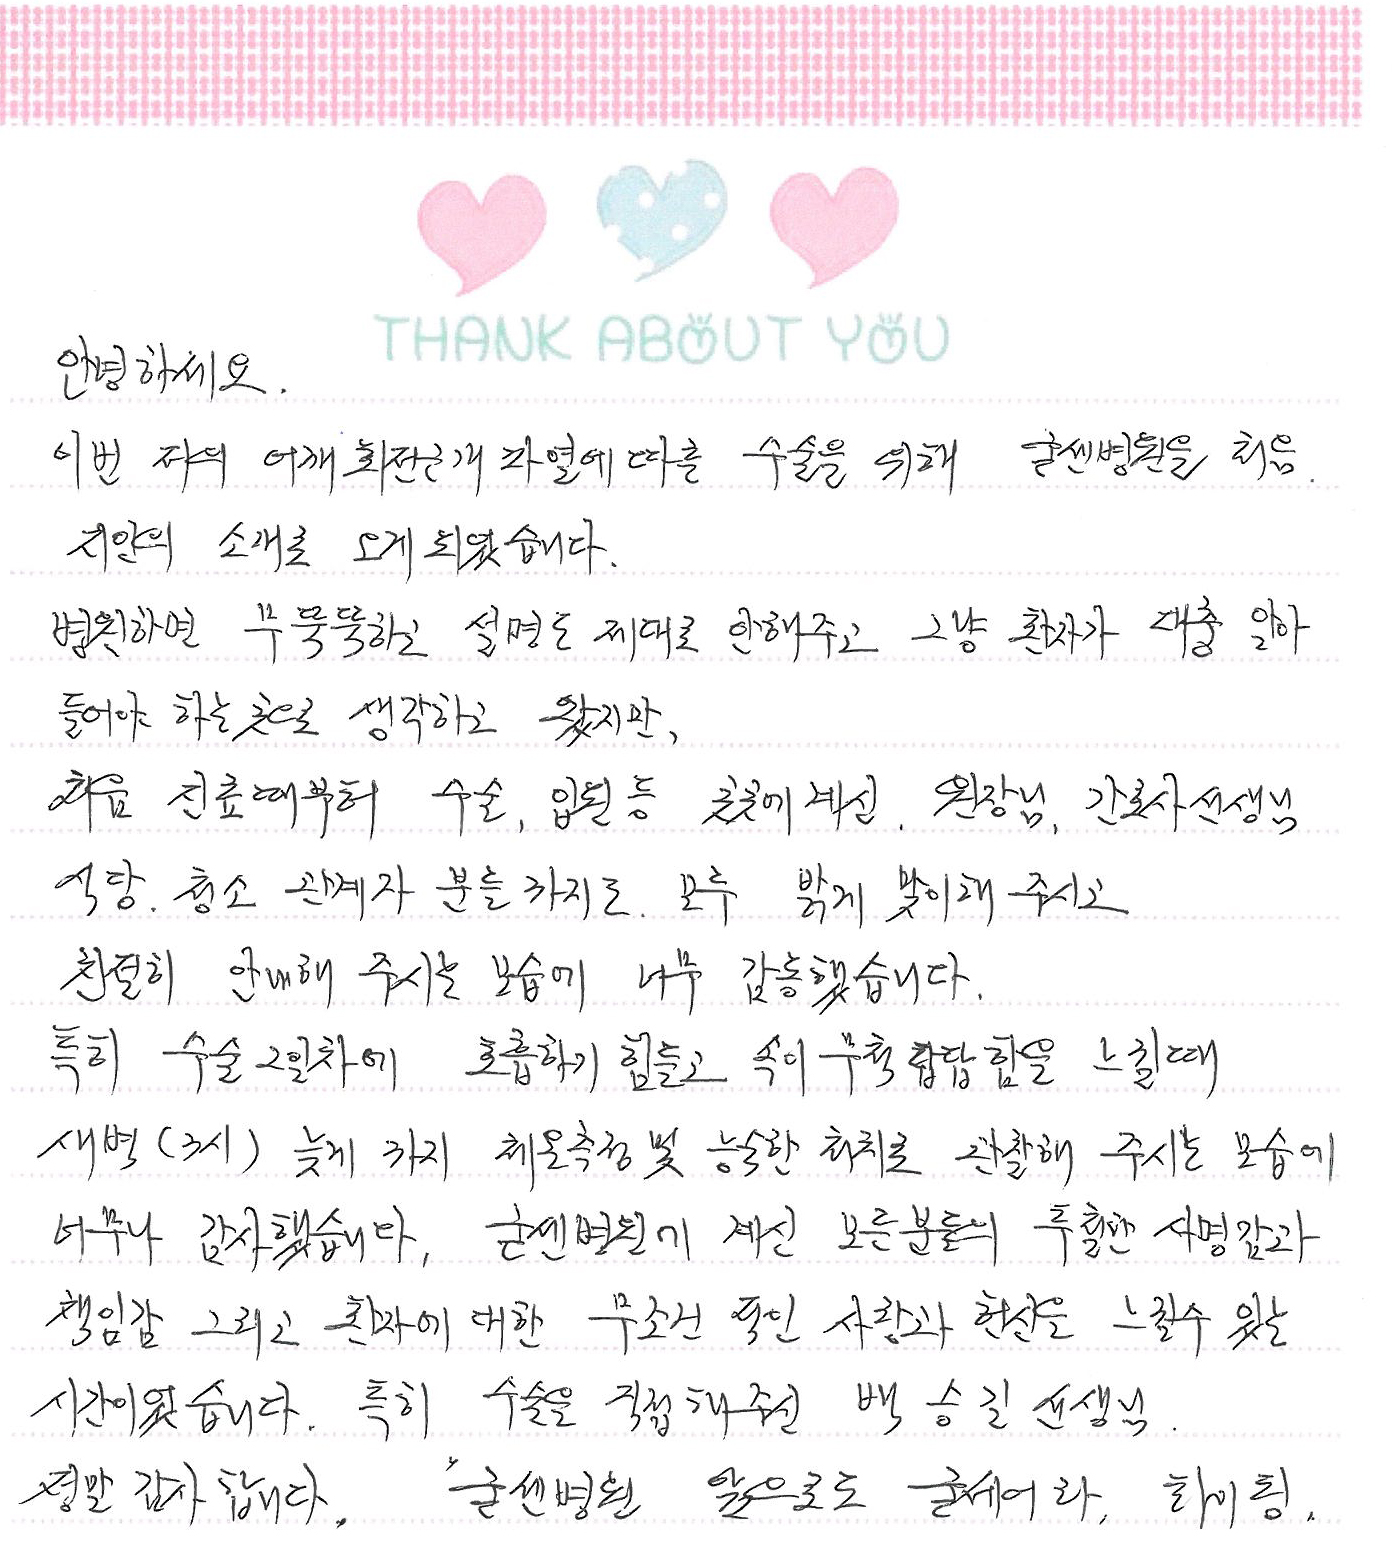 THANK ABOUT YOU
안녕하세요.
이번 저의 어깨 회전근개 파열에 따른 수술을 위해 굳센병원을 처음.
지인의 소개로 오게 되었습니다.
병원하면 무뚝뚝하고 설명도 제대로 안해주고 그냥 환자가 대충 알아
들어야 하는곳으로 생각하고 왔지만,
처음 진료때부터 수술, 입원 등 곳곳에 계신. 원장님, 간호사선생님
식당. 청소 관계자 분들 까지도. 모두 밝게 맞이해 주시고
친절히 안내해 주시는 모습에 너무 감동했습니다.
특히 수술 2일차에 호흡하기 힘들고 속이 무척 답답함을 느낄때
새벽(3시) 늦게 까지 체온측정 및 능숙한 처치로 관찰해 주시는 모습에
너무나 감사했습니다, 굳센병원에 계신 모든분들의 투철한 사명감과
책임감 그리고 환자에 대한 무조건 적인 사랑과 헌신을 느낄수 있는
시간이였습니다. 특히 수술을 직접 해주신 백승길 선생님.
정말 감사합니다. 굳센병원 앞으로도 굳세어라, 화이팅.